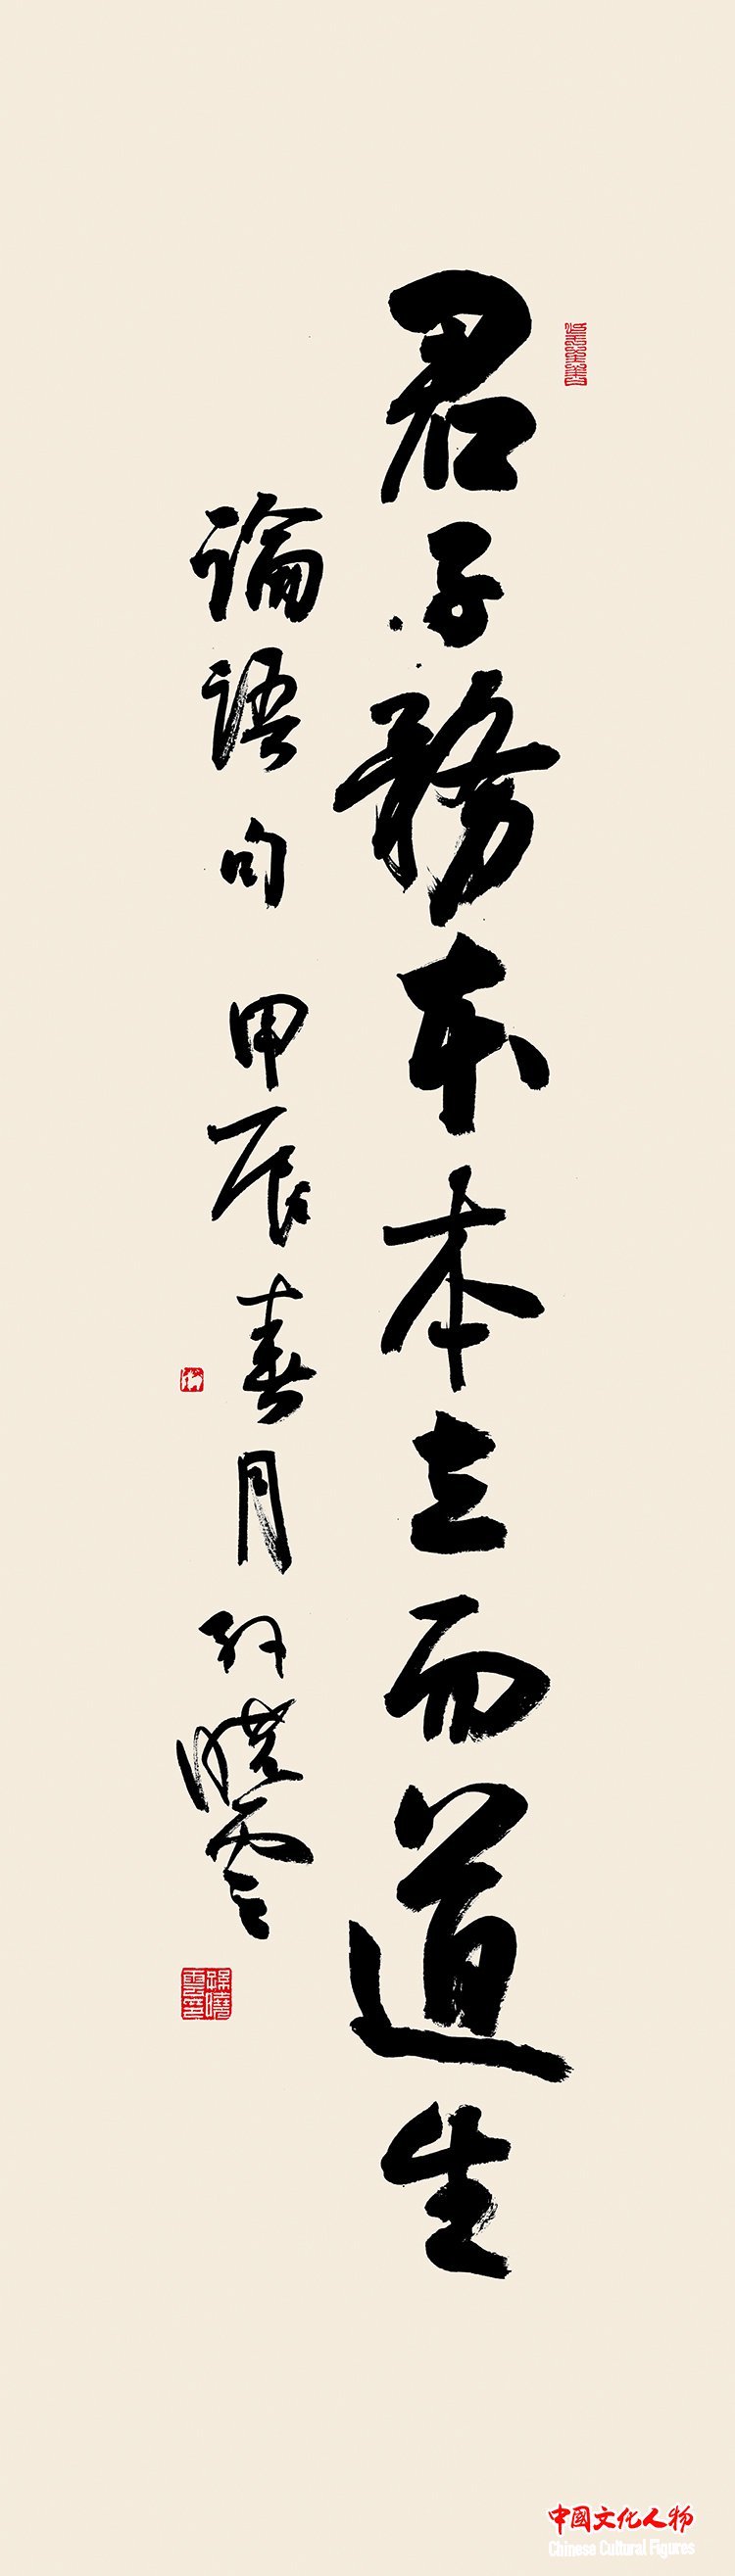 君子務本本立而道生
論語句 甲辰春月 孙曉雲
中國文化人物
Chinese Cultural Figures